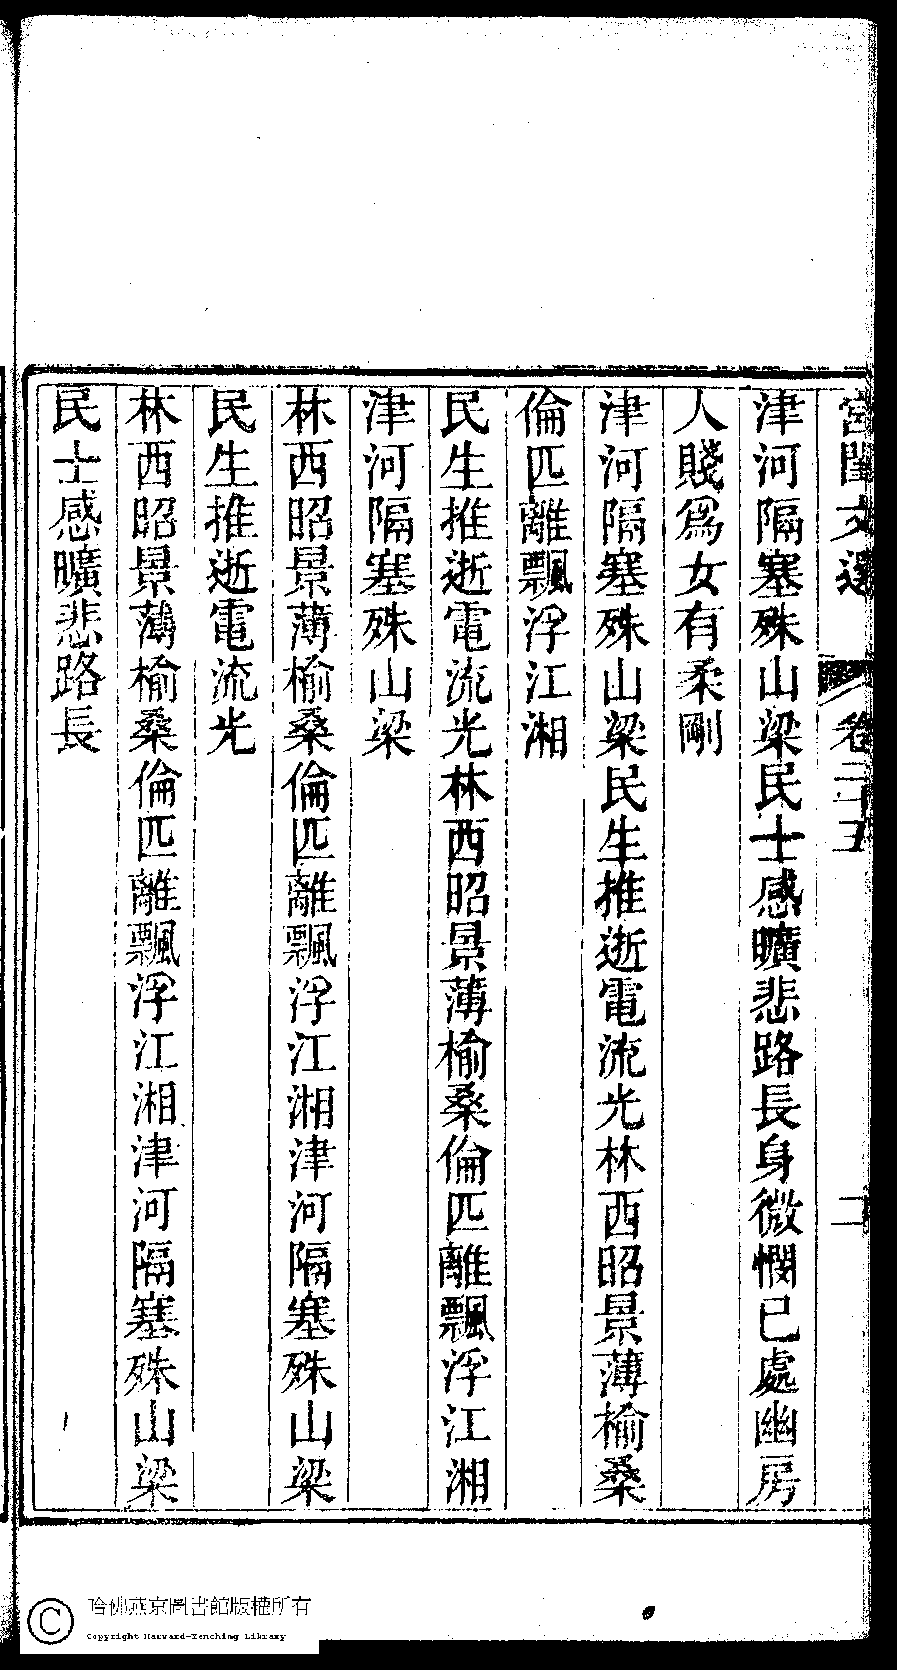 宮閨文選 卷二十五 二
津河隔塞殊山梁民士感曠悲路長身微憫已處幽房
人賤爲女有柔剛
津河隔塞殊山梁民生推逝電流光林西昭景薄榆桑
倫匹離飄浮江湘
民生推逝電流光林西昭景薄榆桑倫匹離飄浮江湘
津河隔塞殊山梁
林西昭景薄榆桑倫匹離飄浮江湘津河隔塞殊山梁
民生推逝電流光
林西昭景薄榆桑倫匹離飄浮江湘津河隔塞殊山梁
民士感曠悲路長
哈佛燕京圖書館版權所有
Copyright Harvard-Yenching Library